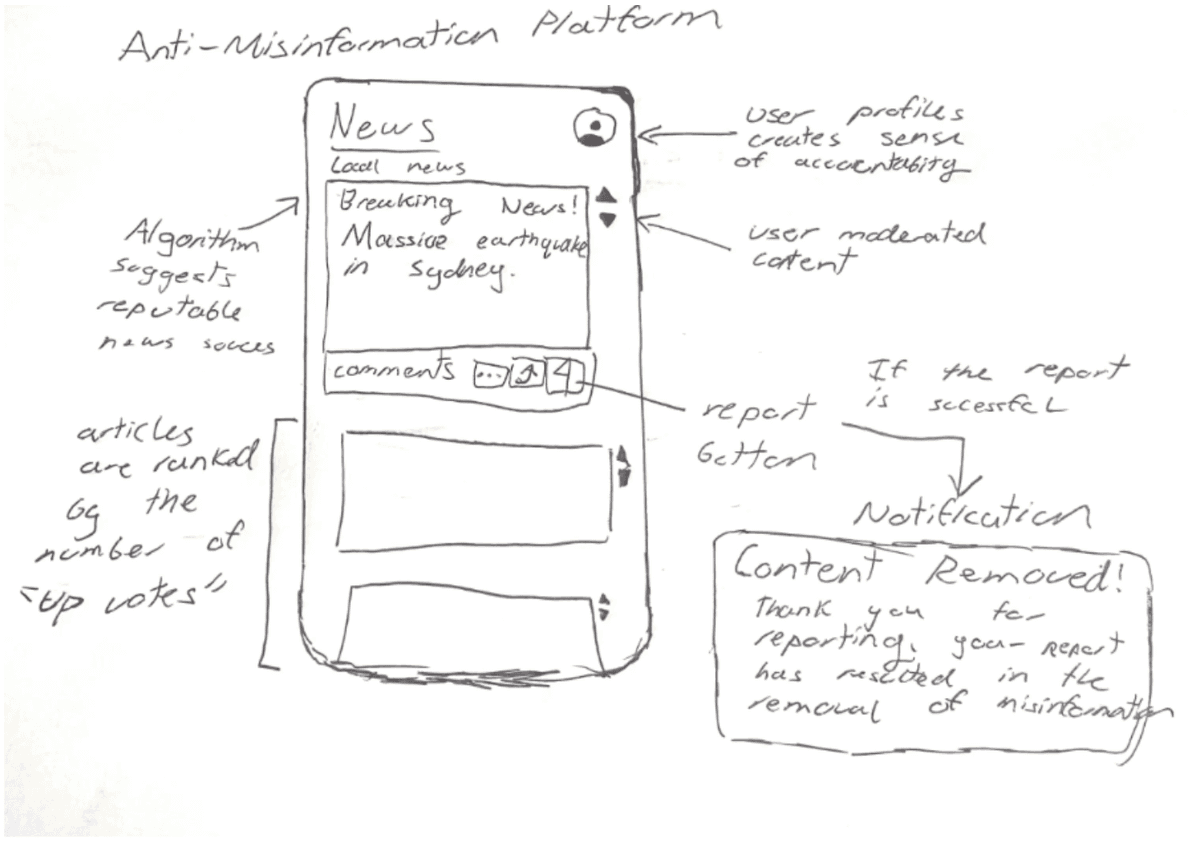 Anti-Misinformation Platform
News
Local news
Breaking News!
Massive earthquake
in Sydney.
comments
user profiles
creates sense
of accountability
user moderated
content
Algorithm
suggests
reputable
news souces
articles
are ranked
by the
number of
"up votes"
report
button
If the report
is sucessful
Notification
Content Removed!
Thank you for
reporting, your report
has resulted in the
removal of misinformation